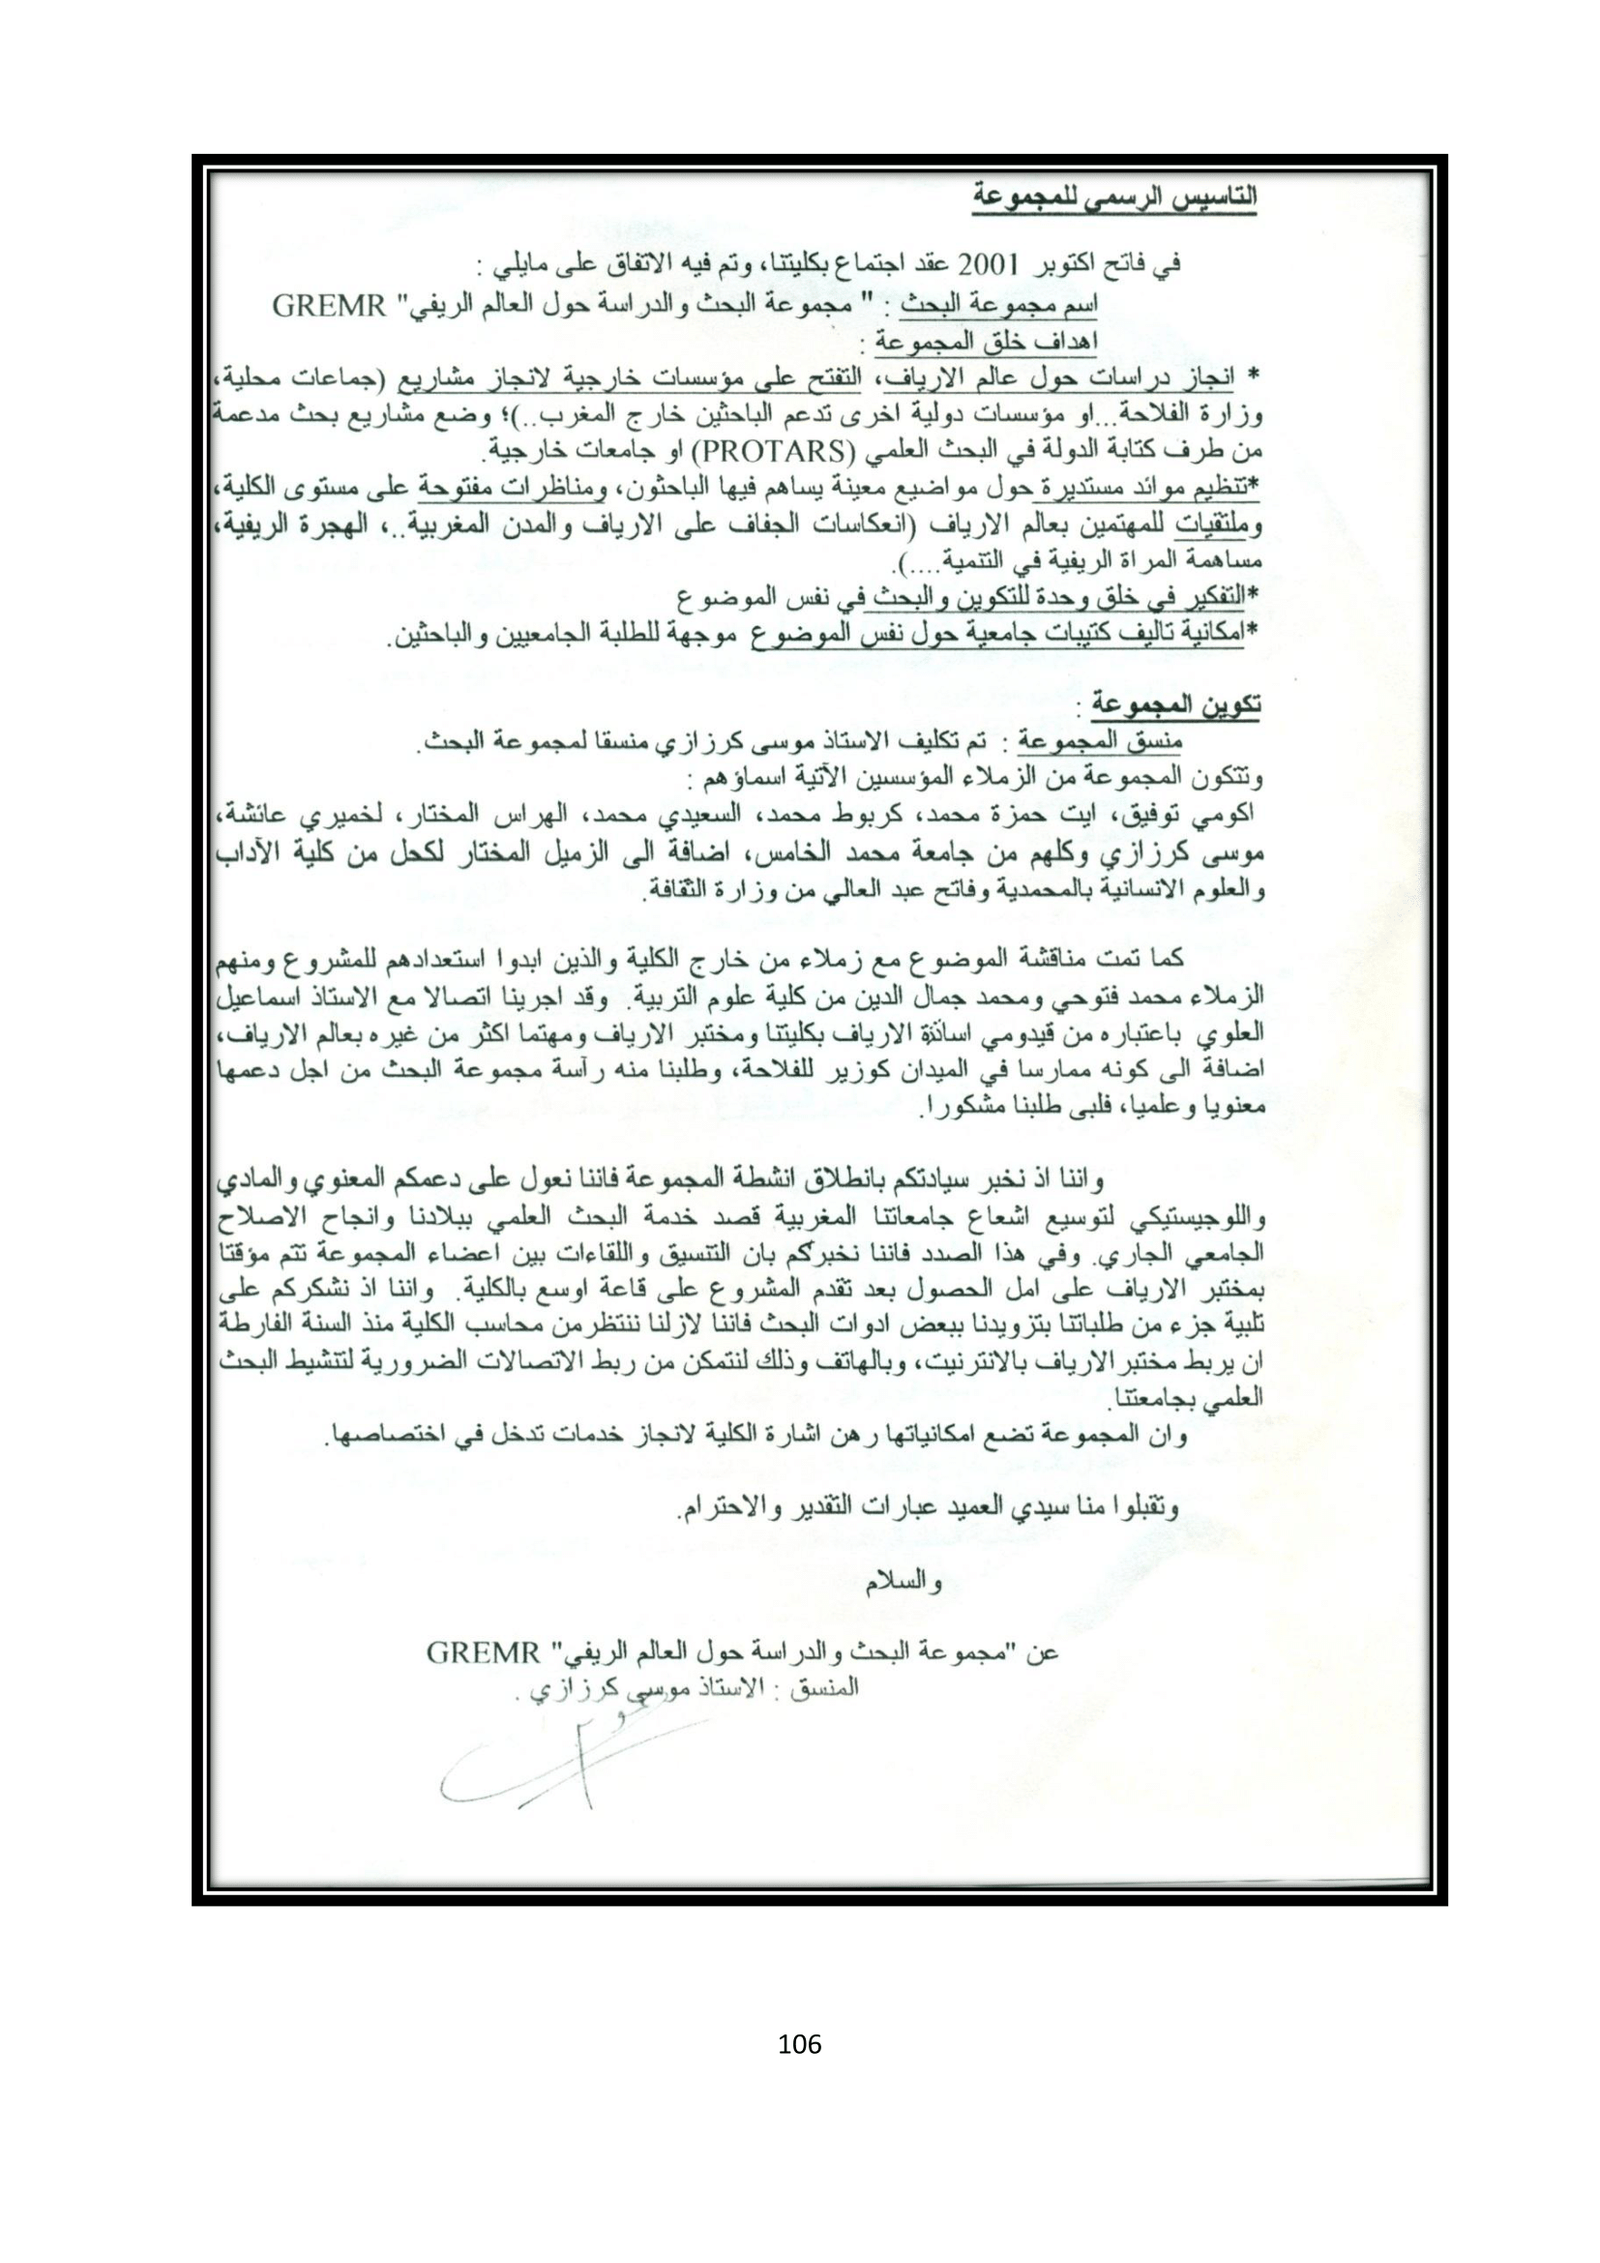 التاسيس الرسمي للمجموعة
في فاتح اكتوبر 2001 عقد اجتماع بكليتنا، وتم فيه الاتفاق على مايلي :
اسم مجموعة البحث : " مجموعة البحث والدراسة حول العالم الريفي" GREMR
اهداف خلق المجموعة :
* انجاز دراسات حول عالم الارياف، التفتح على مؤسسات خارجية لانجاز مشاريع (جماعات محلية،
وزارة الفلاحة...او مؤسسات دولية اخرى تدعم الباحثين خارج المغرب..)؛ وضع مشاريع بحث مدعمة
من طرف كتابة الدولة في البحث العلمي (PROTARS) او جامعات خارجية.
*تنظيم موائد مستديرة حول مواضيع معينة يساهم فيها الباحثون، ومناظرات مفتوحة على مستوى الكلية،
وملتقيات للمهتمين بعالم الارياف (انعكاسات الجفاف على الارياف والمدن المغربية..، الهجرة الريفية،
مساهمة المراة الريفية في التنمية....).
*التفكير في خلق وحدة للتكوين والبحث في نفس الموضوع
*امكانية تاليف كتيبات جامعية حول نفس الموضوع موجهة للطلبة الجامعيين والباحثين.
تكوين المجموعة :
منسق المجموعة : تم تكليف الاستاذ موسى كرزازي منسقا لمجموعة البحث.
وتتكون المجموعة من الزملاء المؤسسين الآتية اسماؤهم :
اكومي توفيق، ايت حمزة محمد، كربوط محمد، السعيدي محمد، الهراس المختار، لخميري عائشة،
موسى كرزازي وكلهم من جامعة محمد الخامس، اضافة الى الزميل المختار لكحل من كلية الآداب
والعلوم الانسانية بالمحمدية وفاتح عبد العالي من وزارة الثقافة.
كما تمت مناقشة الموضوع مع زملاء من خارج الكلية والذين ابدوا استعدادهم للمشروع ومنهم
الزملاء محمد فتوحي ومحمد جمال الدين من كلية علوم التربية. وقد اجرينا اتصالا مع الاستاذ اسماعيل
العلوي باعتباره من قيدومي اساتذة الارياف بكليتنا ومختبر الارياف ومهتما اكثر من غيره بعالم الارياف،
اضافة الى كونه ممارسا في الميدان كوزير للفلاحة، وطلبنا منه رآسة مجموعة البحث من اجل دعمها
معنويا وعلميا، فلبى طلبنا مشكورا.
واننا اذ نخبر سيادتكم بانطلاق انشطة المجموعة فاننا نعول على دعمكم المعنوي والمادي
واللوجيستيكي لتوسيع اشعاع جامعاتنا المغربية قصد خدمة البحث العلمي ببلادنا وانجاح الاصلاح
الجامعي الجاري. وفي هذا الصدد فاننا نخبركم بان التنسيق واللقاءات بين اعضاء المجموعة تتم مؤقتا
بمختبر الارياف على امل الحصول بعد تقدم المشروع على قاعة اوسع بالكلية. واننا اذ نشكركم على
تلبية جزء من طلباتنا بتزويدنا ببعض ادوات البحث فاننا لازلنا ننتظرمن محاسب الكلية منذ السنة الفارطة
ان يربط مختبر الارياف بالانترنيت، وبالهاتف وذلك لنتمكن من ربط الاتصالات الضرورية لتنشيط البحث
العلمي بجامعتنا.
وان المجموعة تضع امكانياتها رهن اشارة الكلية لانجاز خدمات تدخل في اختصاصها.
وتقبلوا منا سيدي العميد عبارات التقدير والاحترام.
والسلام
عن "مجموعة البحث والدراسة حول العالم الريفي" GREMR
المنسق : الاستاذ موسى كرزازي .
106